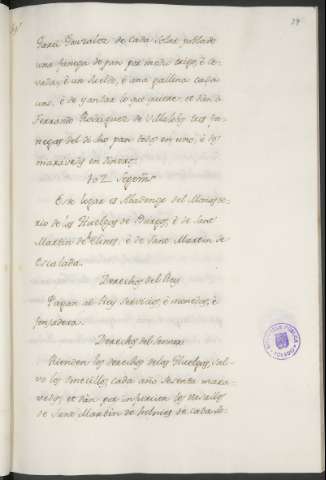 29
Garci Gonzalez de cada solar poblado
una fanega de pan por medio trigo, è ce-
vada, è un sueldo, è una gallina cada
uno, è de yantar lo que quiere, et dan à
Ferrando Rodriguez de Villalobos tres fa-
negas del dicho pan todo en uno, è
maravedis en dineros.
Este logar es Abadengo del Monaste-
rio de las Huelgas de Burgos, è de Sant
Martin de Elines, è de Sant Martin de
Escalada.
Derecho del Rey
Pagan al Rey Servicios, è monedas, è
fonsadera.
Derecho del Señor
Lievan los derechos de las Huelgas, Sal-
vo los Omecillos cada año sesenta mara-
vedis, et dan por infurcion los vasallos
de Sant Martin de Helines de cada so-